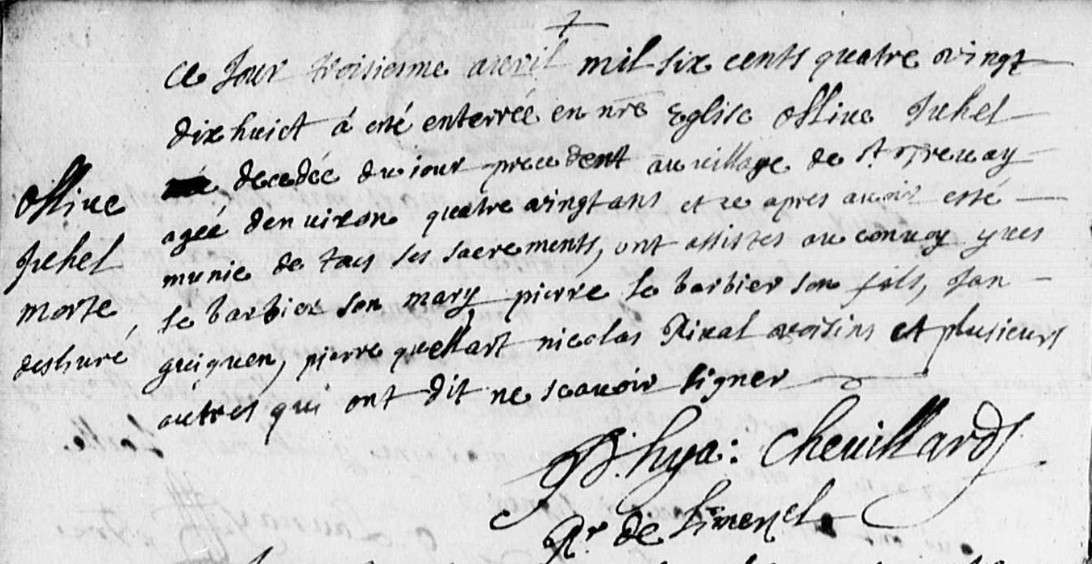 ce Jour troisiesme avril mil six cents quatre vingt
dix huict á esté enterrée en nre Eglise Ollive Juhel
decedée du jour precedent au village de St
agée denviron quatre vingt ans et ce apres avoir esté
munie de tous ses sacrements, ont assistes au convoy yves
le barbier son mary, pierre le barbier son fils, Jan
guiguen, pierre quellart nicolas Rival voisins et plusieurs
autres qui ont dit ne scavoir signer
Ollive
Juhel
morte
hya: Chevillard
Rr de